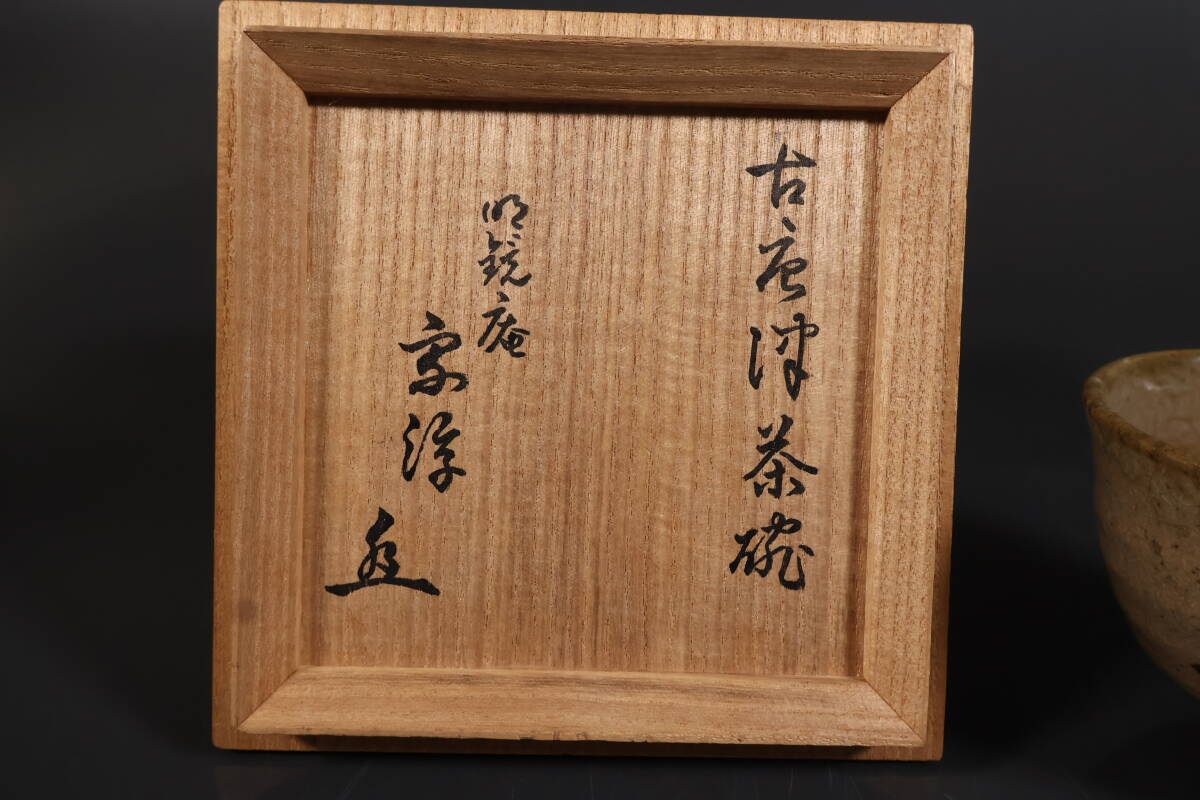 古唐津茶碗
明鏡庵
宗淳